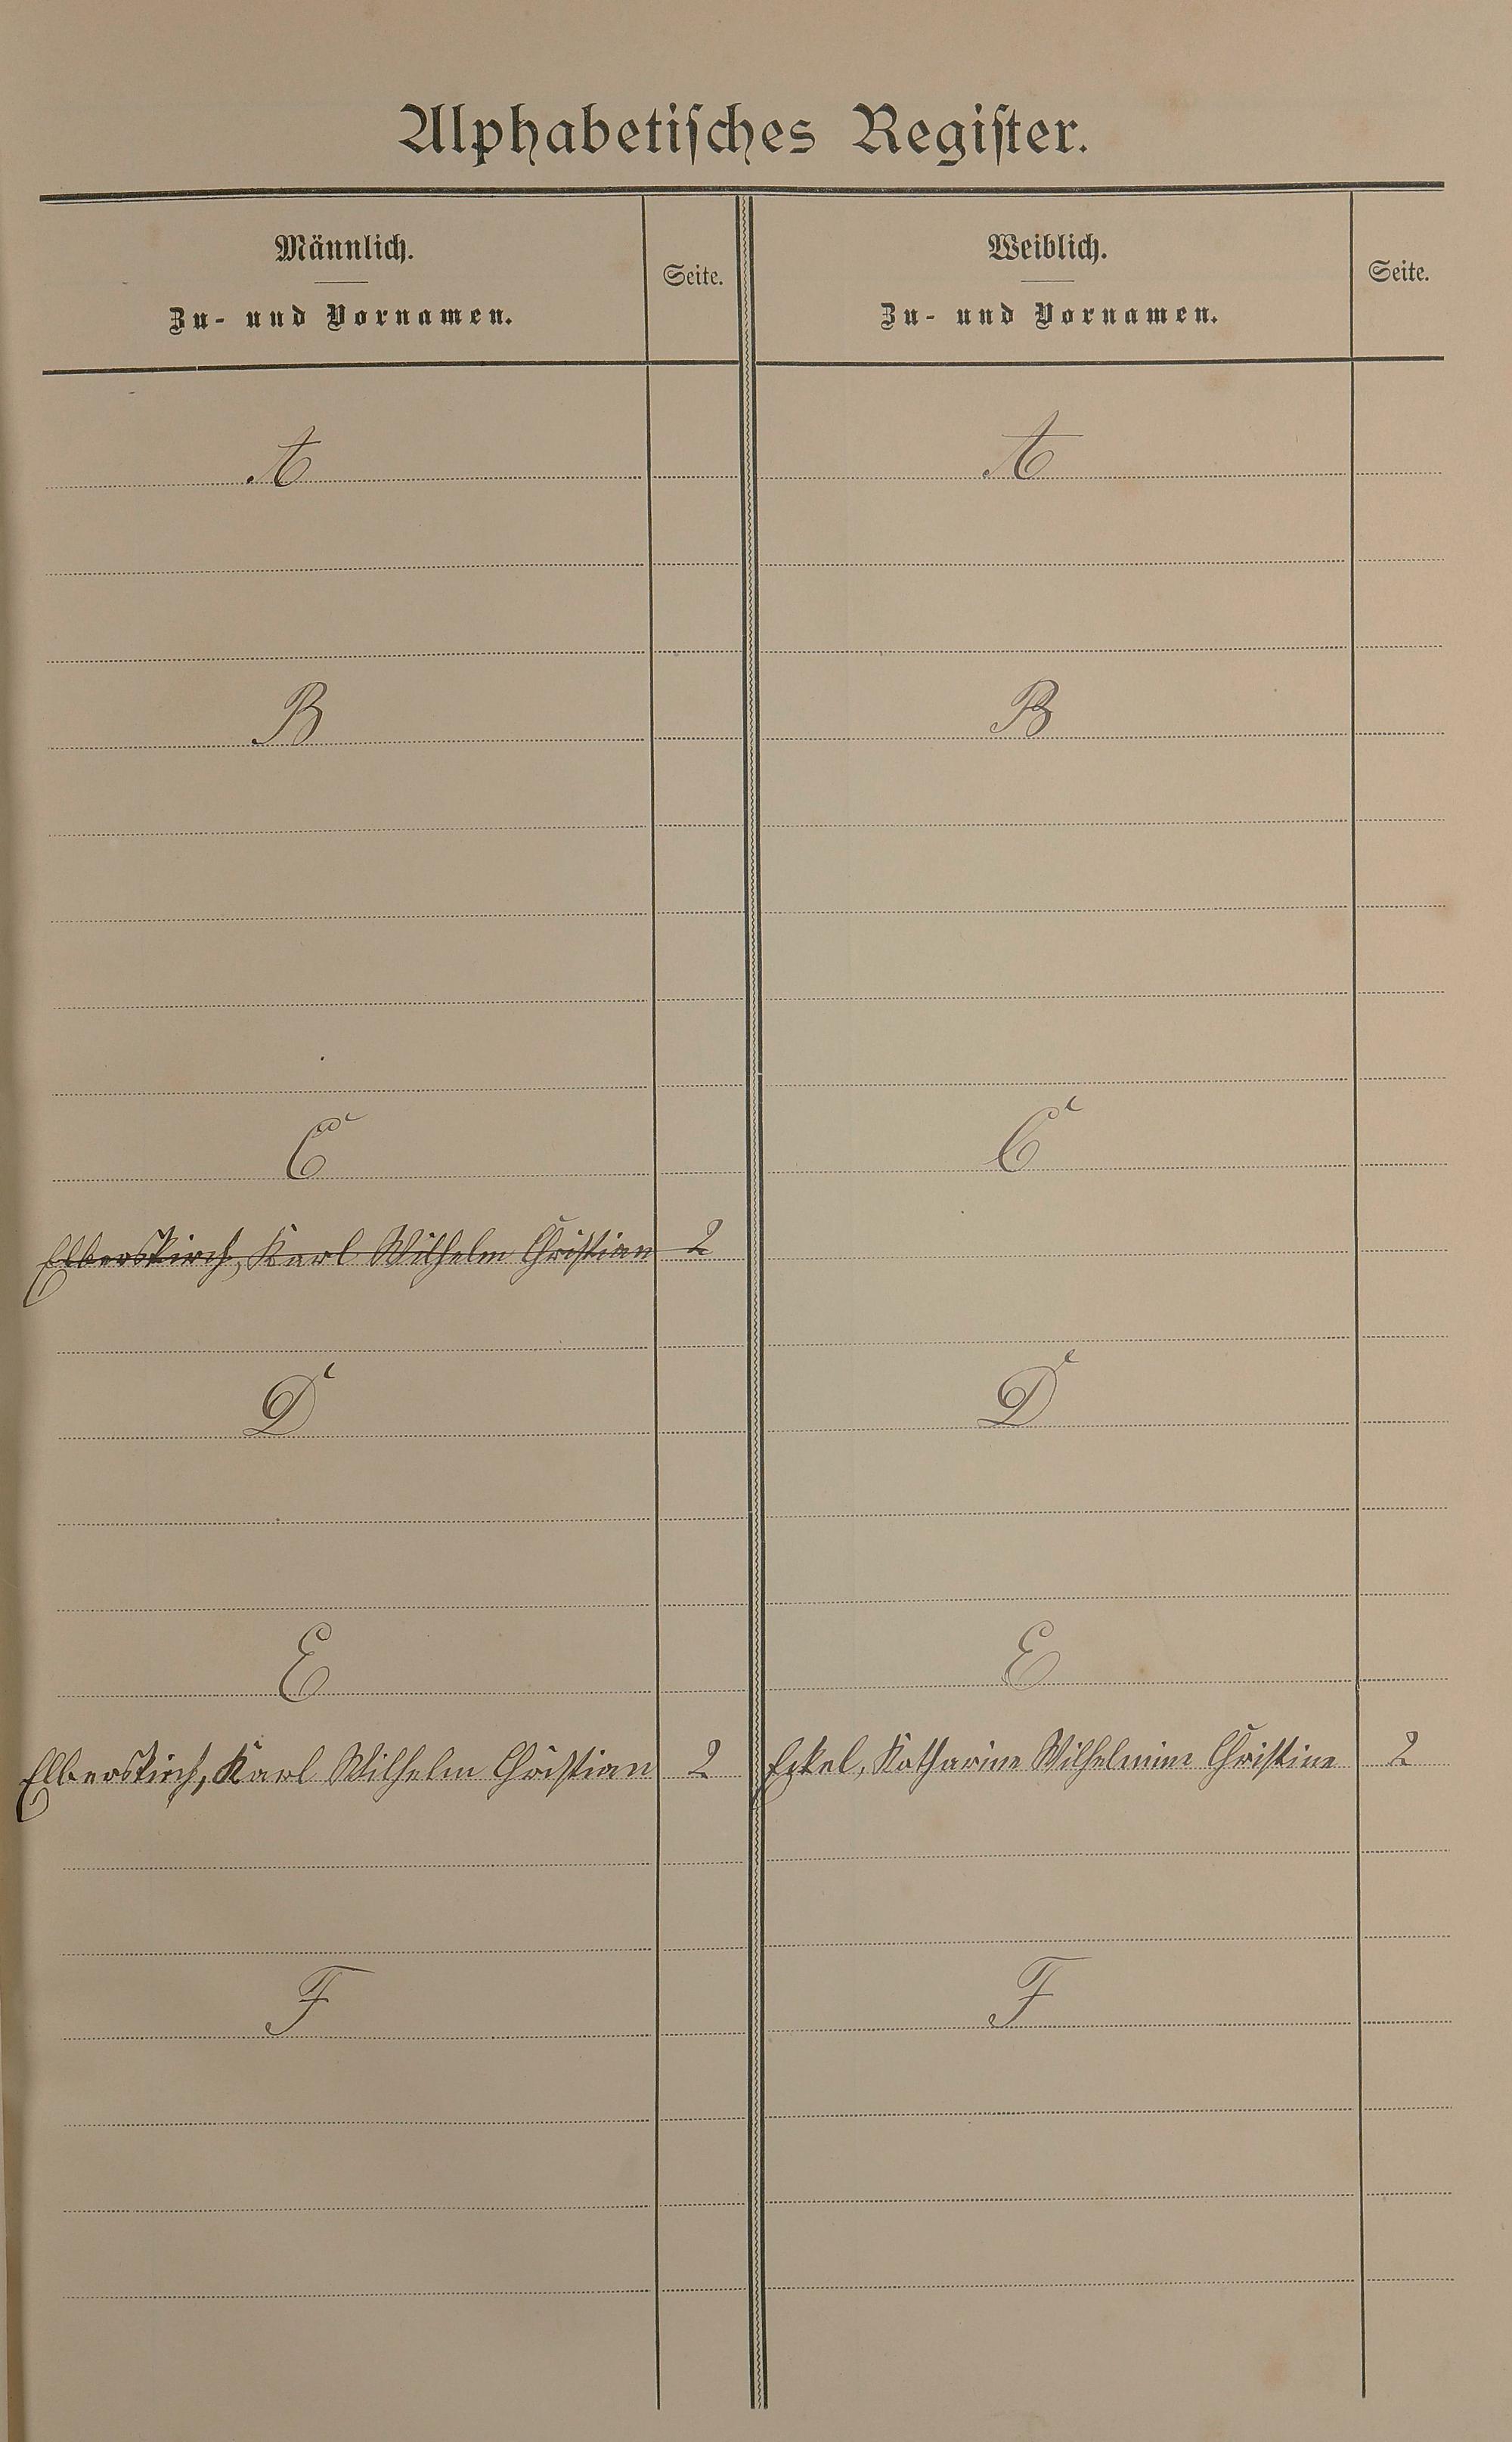 Alphabetisches Register.
Männlich. Weiblich.
Seite. Seite.
Zu- und Vornamen. Zu- und Vornamen.
A A
B B
C C
Elberskirch, Karl Wilhelm Christian 2
D D
E E
Elberskirch, Karl Wilhelm Christian 2 Eckel, Katharine Wilhelmine Christine 2
F F